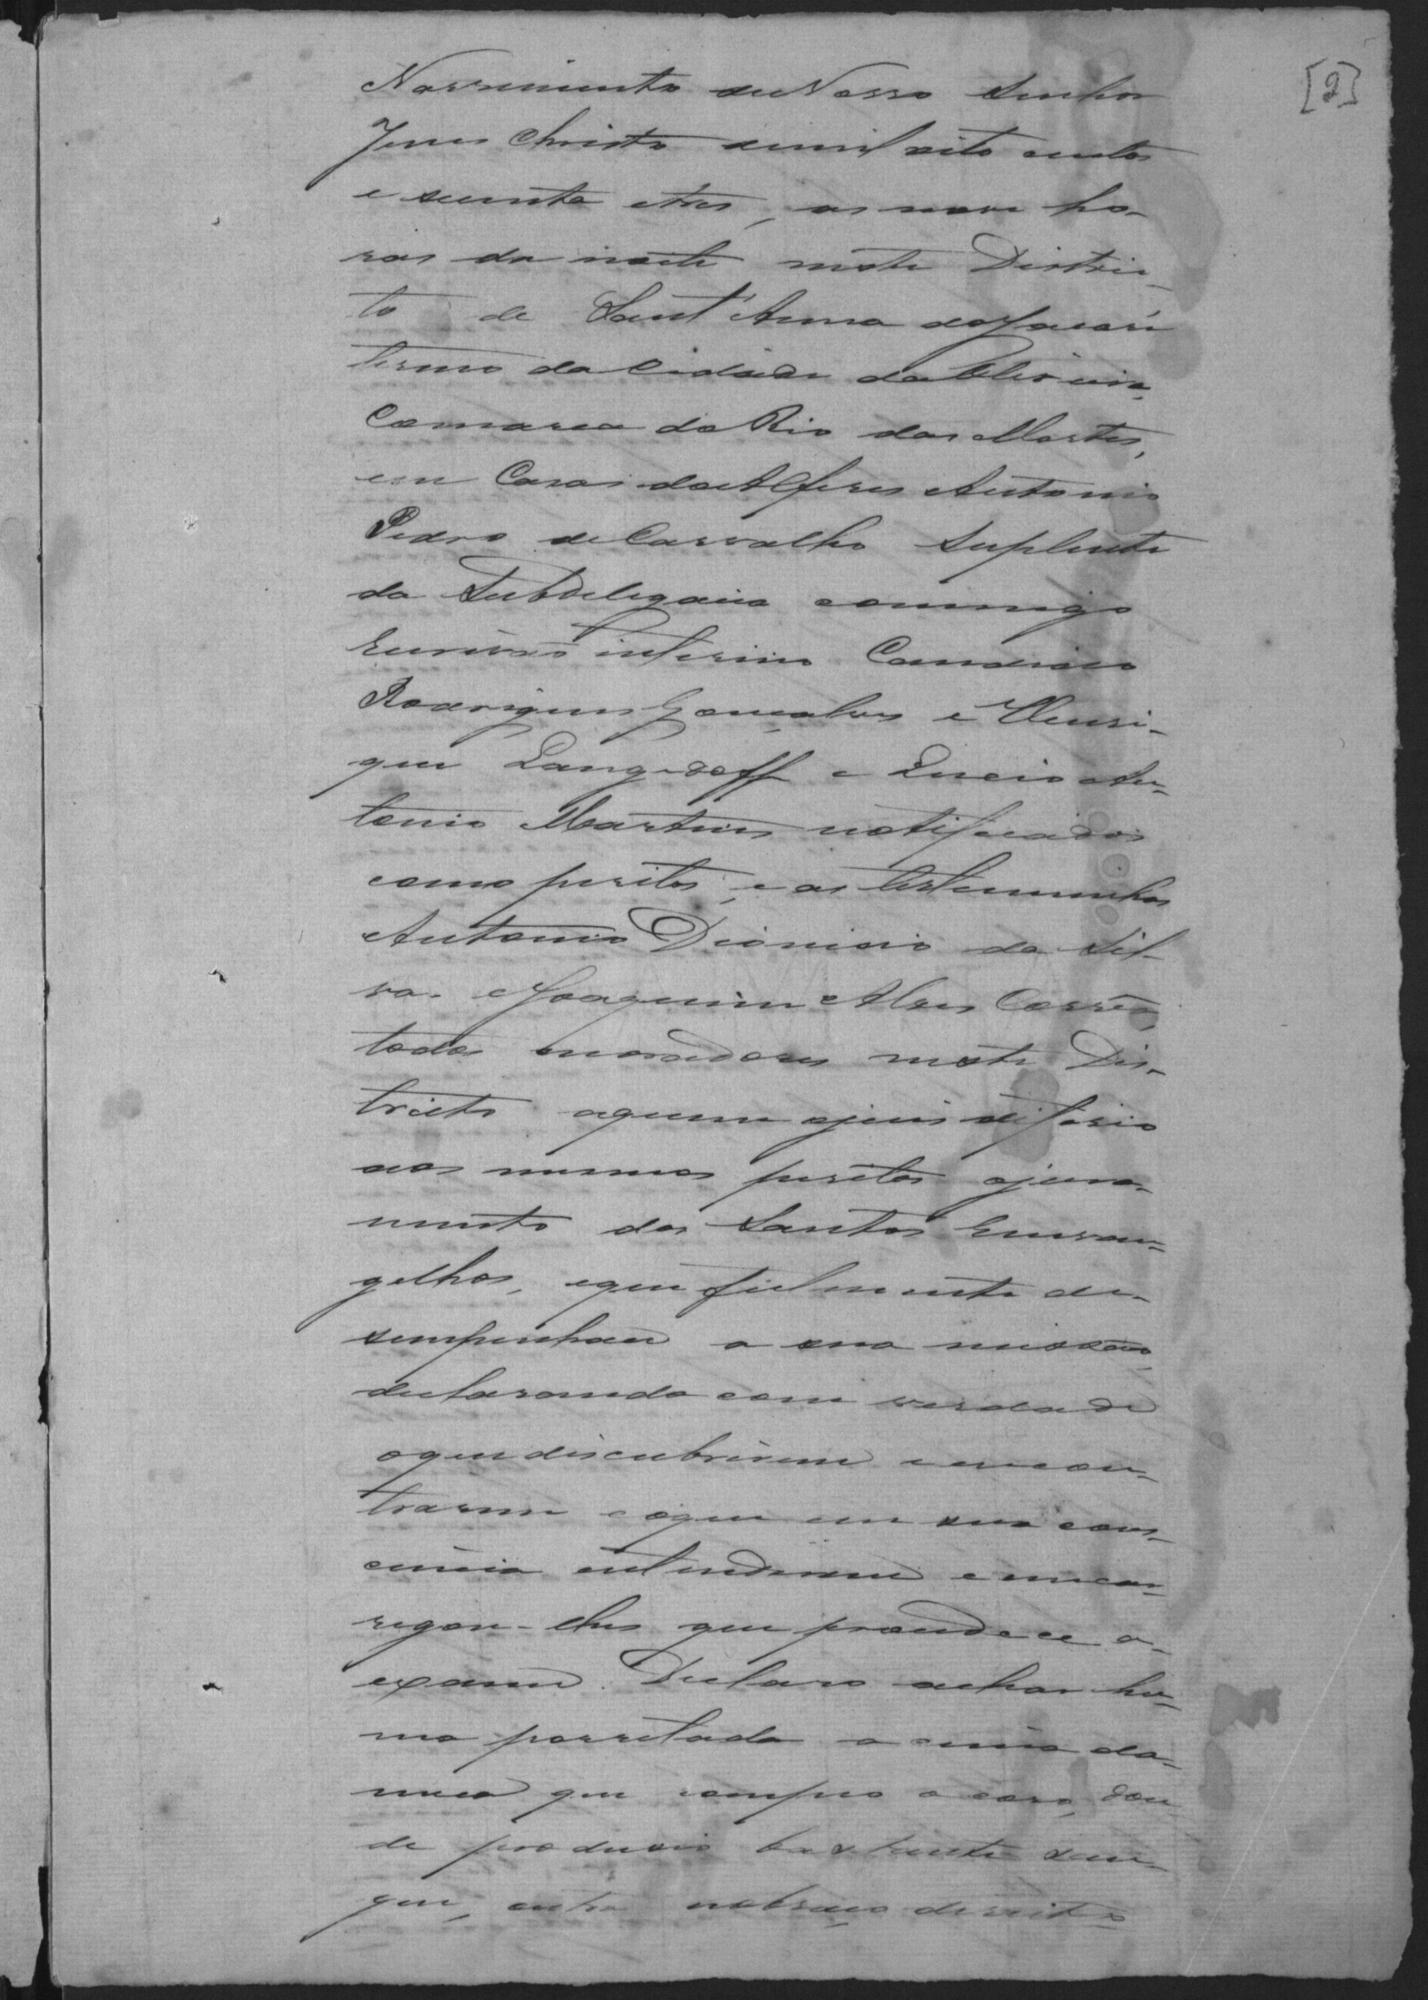 [2]
Nascimento de Nosso Senhor
Jesus Christo de mil oito centos
e secenta e tres, as nove ho-
ras da noite neste Distric-
to de Sant'Anna do Jacaré
termo da Cidade da Oliveira,
Comarca do Rio das Mortes,
em Casas do Alferes Antonio
Pedro de Carvalho Suplente
da Subdelegacia commigo
Escrivão interino Candido
Rodrigues Gonçalves e Henri-
que Langsdoff e Lucio An-
tonio Martins notificados
como peritos, e as testemunhas
Antonio Dionisio da Sil-
va e Joaquim Alves Corrêa,
todos moradores neste Dis-
tricto aquem ojuis diferio
aos mesmos peritos ojura-
mento dos Santos Envan-
gelhos, eque fielmente de-
sempenhace a sua missão,
declarando com verdade
oque discubrirem e encon-
trarem e oque em sua cons-
ciencia entenderem e encar-
regou-lhes que procedece o
exame. Declaro achar hu-
ma porretada a cima da
nuca que rompeo o coro, don-
de produsio bastante san-
gue, outra nobraço direito